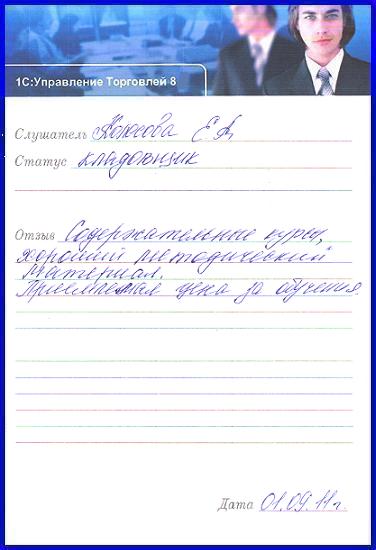 1С:Управление Торговлей 8
Слушатель Е А
Статус кладовщик
Отзыв Содержательные курсы,
хороший методический
материал.
Приемлемая цена за обучения.
Дата 01.09.11г.